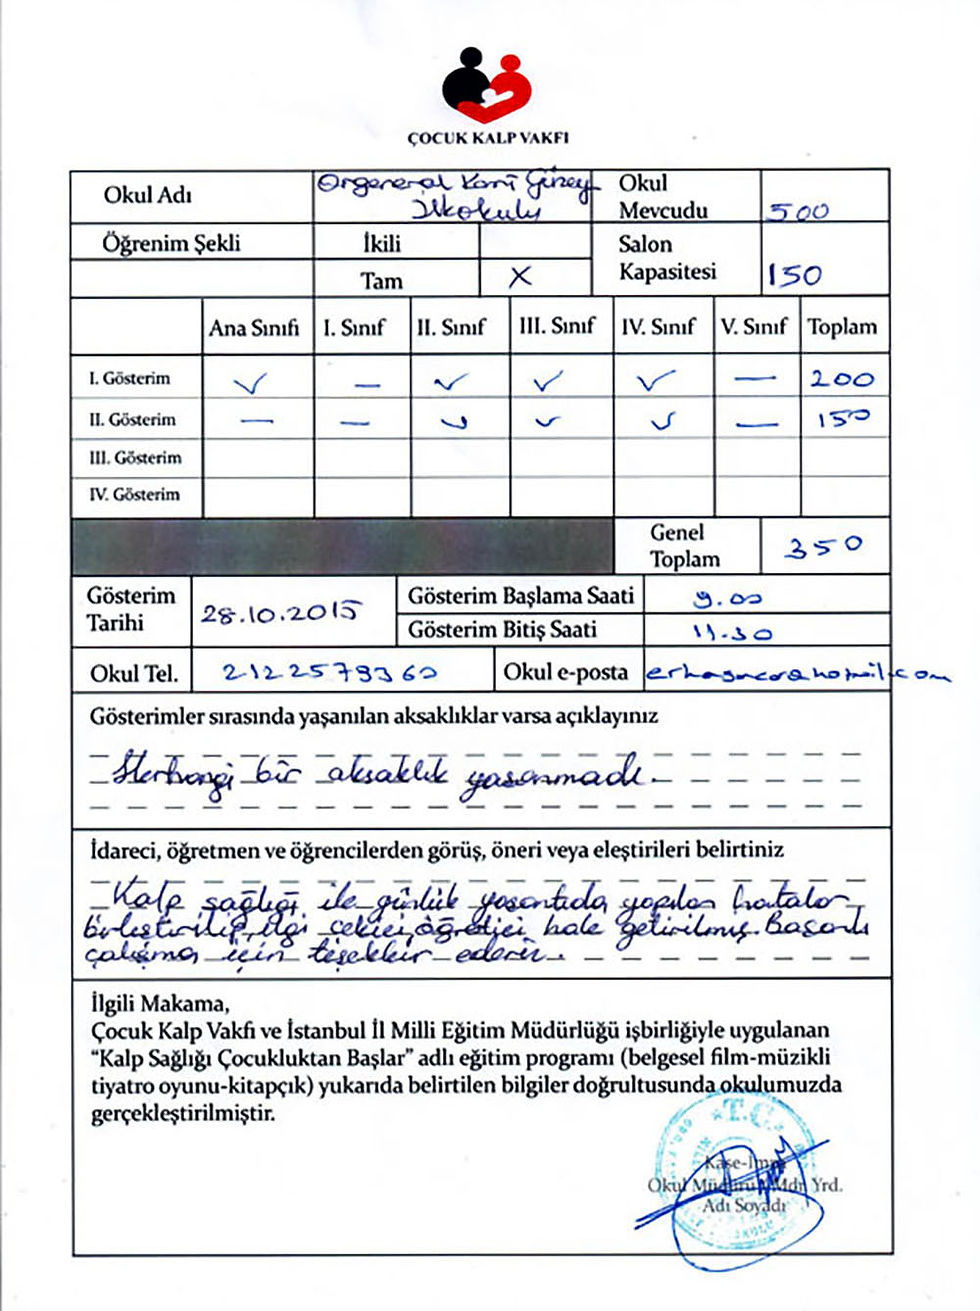 ÇOCUK KALP VAKFI
Okul Adı
Orgeneral Kami Güzey
İlkokulu
Okul
Mevcudu
500
Öğrenim Şekli
İkili
Tam
X
Salon
Kapasitesi
150
Ana Sınıfı I. Sınıf II. Sınıf III. Sınıf IV. Sınıf V. Sınıf Toplam
I. Gösterim ✓ — ✓ ✓ ✓ — 200
II. Gösterim — — ✓ ✓ ✓ — 150
III. Gösterim
IV. Gösterim
Genel
Toplam
350
Gösterim
Tarihi
28.10.2015
Gösterim Başlama Saati 9.00
Gösterim Bitiş Saati 11.30
Okul Tel. 2122579360 Okul e-posta
Gösterimler sırasında yaşanılan aksaklıklar varsa açıklayınız
Herhangi bir aksaklık yaşanmadı.
İdareci, öğretmen ve öğrencilerden görüş, öneri veya eleştirileri belirtiniz
Kalp sağlığı ile günlük yaşantıda yapılan hatalar
birleştirilip, ilgi çekici, öğretici hale getirilmiş. Başarılı
çalışma için teşekkür ederiz.
İlgili Makama,
Çocuk Kalp Vakfı ve İstanbul İl Milli Eğitim Müdürlüğü işbirliğiyle uygulanan
“Kalp Sağlığı Çocukluktan Başlar” adlı eğitim programı (belgesel film-müzikli
tiyatro oyunu-kitapçık) yukarıda belirtilen bilgiler doğrultusunda okulumuzda
gerçekleştirilmiştir.
T.C.
Kaşe-İmza
Okul Müdürü / Mdr. Yrd.
Adı Soyadı